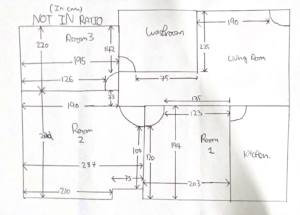 (In cm)
NOT IN RATIO
Room 3
Washroom
190
220
142
235
Living Room
195
126
75
23
190
135
123
Room
2
Room
1
Kitchen
100
120
194
287
75
203
210